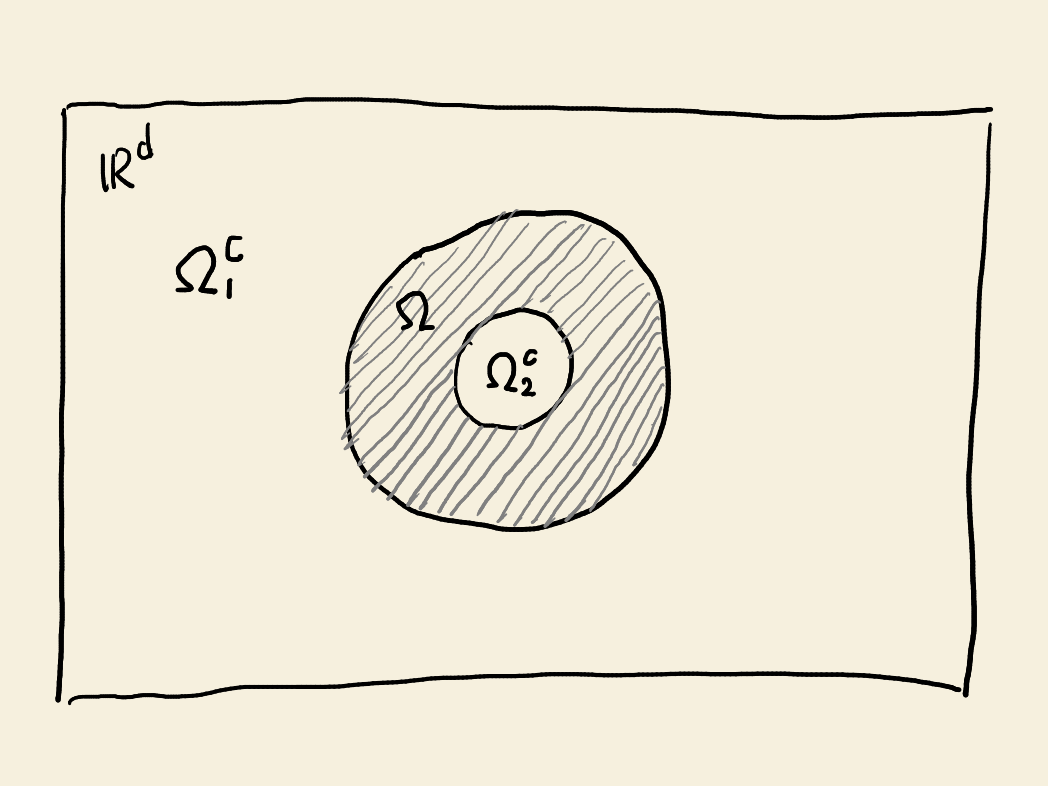 ℝᵈ
Ω₁ᶜ
Ω
Ω₂ᶜ